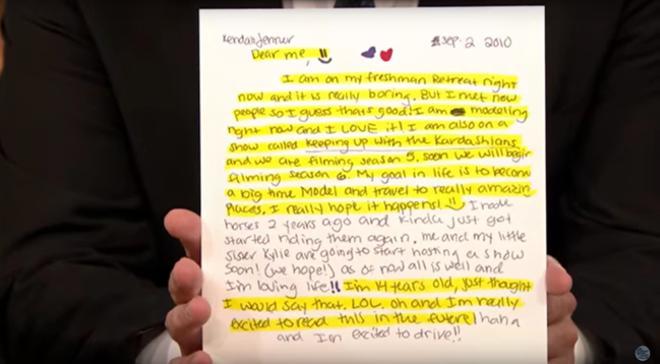 Kendall Jenner
Sep. 2 2010
Dear me,
I am on my freshman Retreat right
now and it is really boring. But I met new
people so I guess thats good! I am modeling
right now and I LOVE it! I am also on a
show called keeping up with the Kardashians
and we are filming season 5, soon we will begin
filming season 6. My goal in life is to become
a big time Model and travel to really amazing
Places. I really hope it happens! I rode
horses 2 years ago and kinda just got
started riding them again. me and my little
sister Kylie are going to start hosting a show
soon! (we hope!) as of now all is well and
I'm loving life!! I'm 14 years old, just thought
I would say that. LOL. oh and I'm really
excited to read this in the future! haha
and I'm excited to drive!!